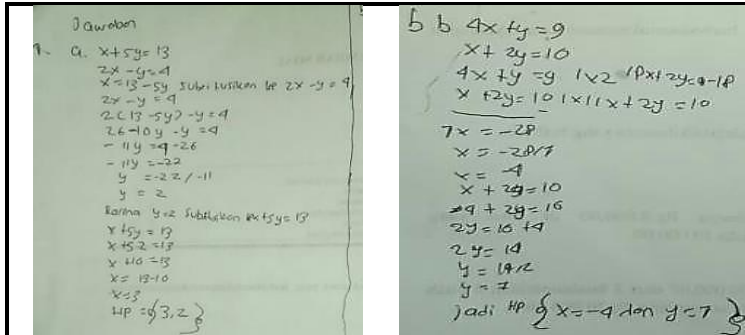 Jawaban
1. a. x+5y=13
2x-y=4
x=13-5y Subtitusikan ke 2x-y=4
2x-y=4
2(13-5y)-y=4
26-10y-y=4
-11y=4-26
-11y=-22
y=-22/-11
y=2
Karna y=2 Subtitusikan ke x+5y=13
x+5y=13
x+5.2=13
x+10=13
x=13-10
x=3
HP={3,2}
b 4x+y=9
x+2y=10
x+2y=10 |x1| x+2y=10
7x=-28
x=-28/7
x=-4
x+2y=10
-4+2y=10
2y=10+4
2y=14
y=14/2
y=7
Jadi HP {x=-4 dan y=7}